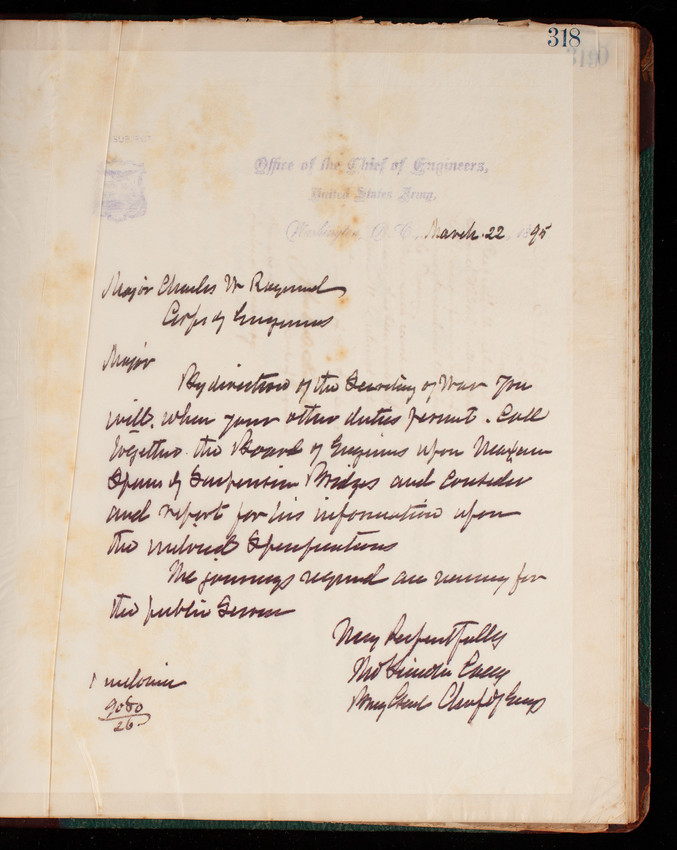 318
Office of the Chief of Engineers,
United States Army,
Washington, D.C., March 22, 1895
Major Charles W Raymond
Corps of Engineers
Major
By direction of the Secretary of War you
will, when your other duties permit, call
together the Board of Engineers upon Maximum
Spans of Suspension Bridges and consider
and report for his information upon
the inclosed specifications
The journeys required are necessary for
the public service
Very Respectfully
Thos Lincoln Casey
Brig Genl Chief of Engrs
1 inclosure
9080
26